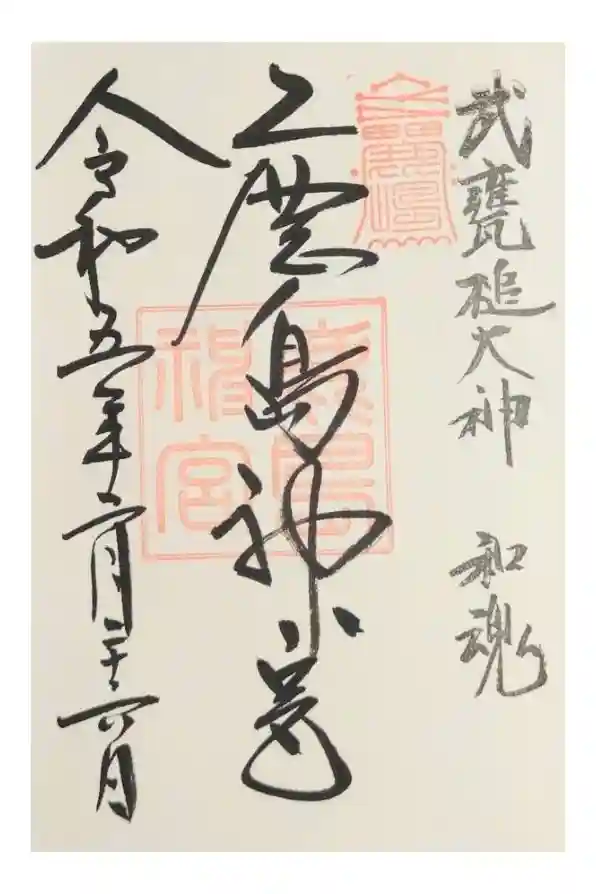 武甕槌大神 和魂
鹿島神宮
鹿島
神宮
令和五年六月二十六日